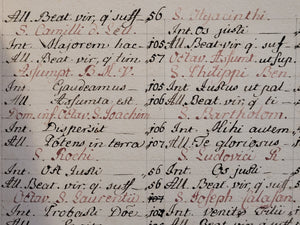 All. Beat. vir, q' suff 56
S. Camilli d. Lell.
Int. Majorem hac 105
All. Beat. vir, q' tim 57
Assumpt. B. M. V.
Int. Gaudeamus
All. Assumta est
Dom. inf. Oct. S. Joachim
Int. Dispersit
All. Potens in terra
S. Rochi
Int. Os Justi
All. Beat. vir, q' suff
Octav. S. Laurentii
Int. Probasti Dõe
S. Hyacinthi
Int. Os justi
All. Beat. vir, q' suf
Octav. Assumt. ut sup
S. Philippi Ben.
105 Int. Justus ut pal
106 All. Beat. vir, q' ti
S. Bartholom.
106 Int. Mihi autem
107 All. Te gloriosus
S. Ludovici R.
56 Int. Os justi
56 All. Beat. vir, q' suff
S. Joseph Calasan
107 Int. Venite Filii